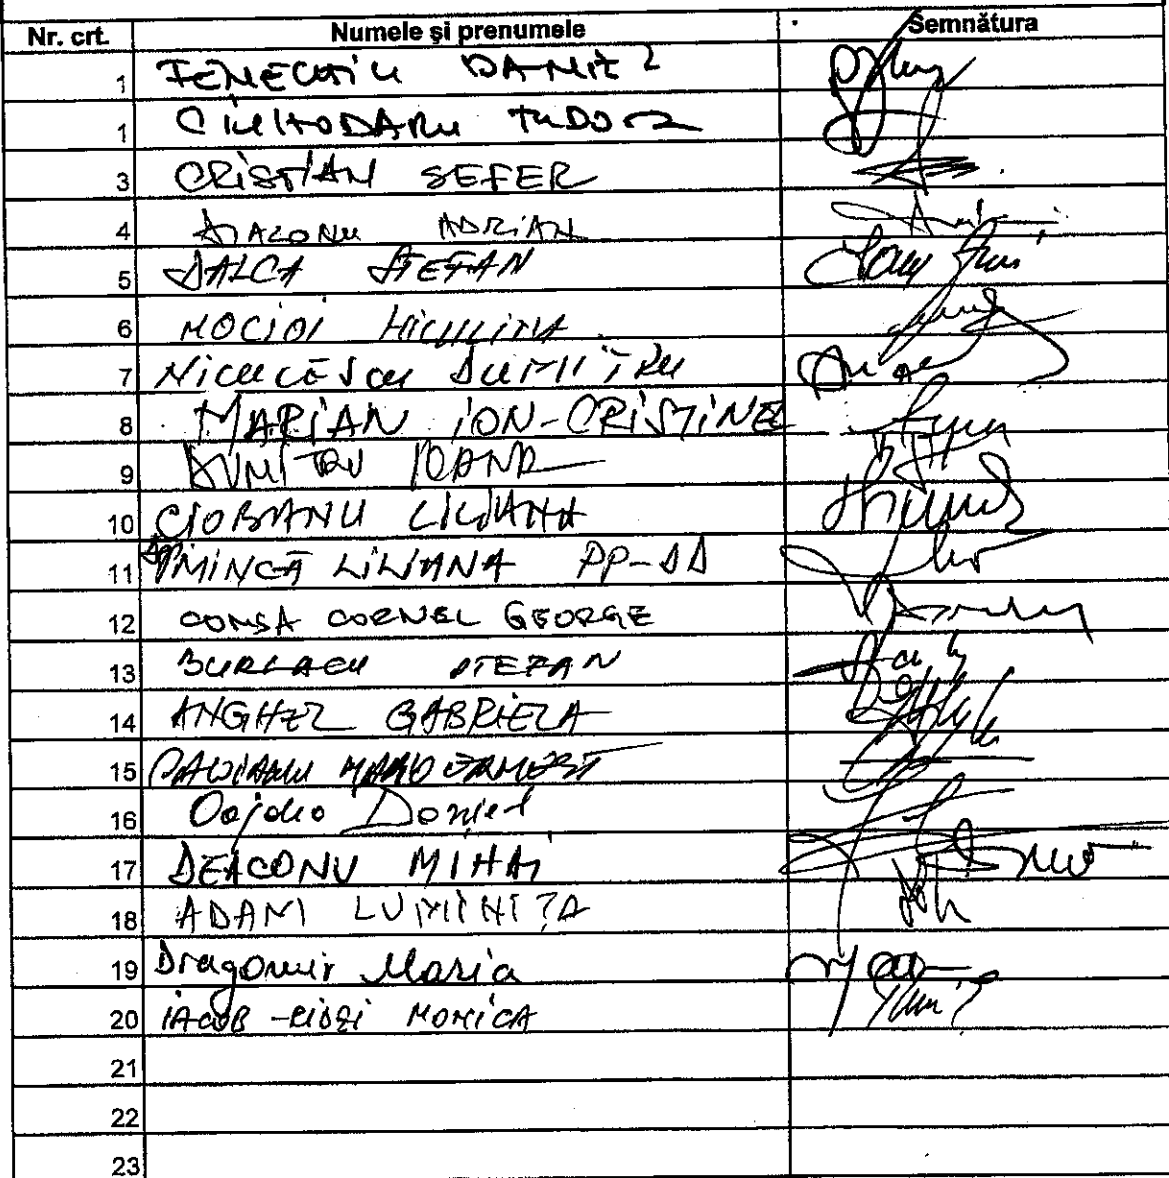 Nr. crt. Numele și prenumele Semnătura
1 FENECHIU DANIEL
1 CIUHODARU TUDOR
3 CRISTIAN SEFER
4 DIACONU ADRIAN
5 DALCA STEFAN
6 MOCIOI
7 NICULESCU DUMITRU
8 MARIAN ION-CRISTINEL
9 DUMITRU IOANA
10 CIOBANU LILIANA
11 MINCĂ LILIANA PP-DD
12 COMSA CORNEL GEORGE
13 BURLACU STEFAN
14 ANGHEL GABRIELA
15
16 Daniel
17 DEACONU MIHAI
18 ADAM LUMINIȚA
19 Dragomir Maria
20 IACOB-RIDZI MONICA
21
22
23